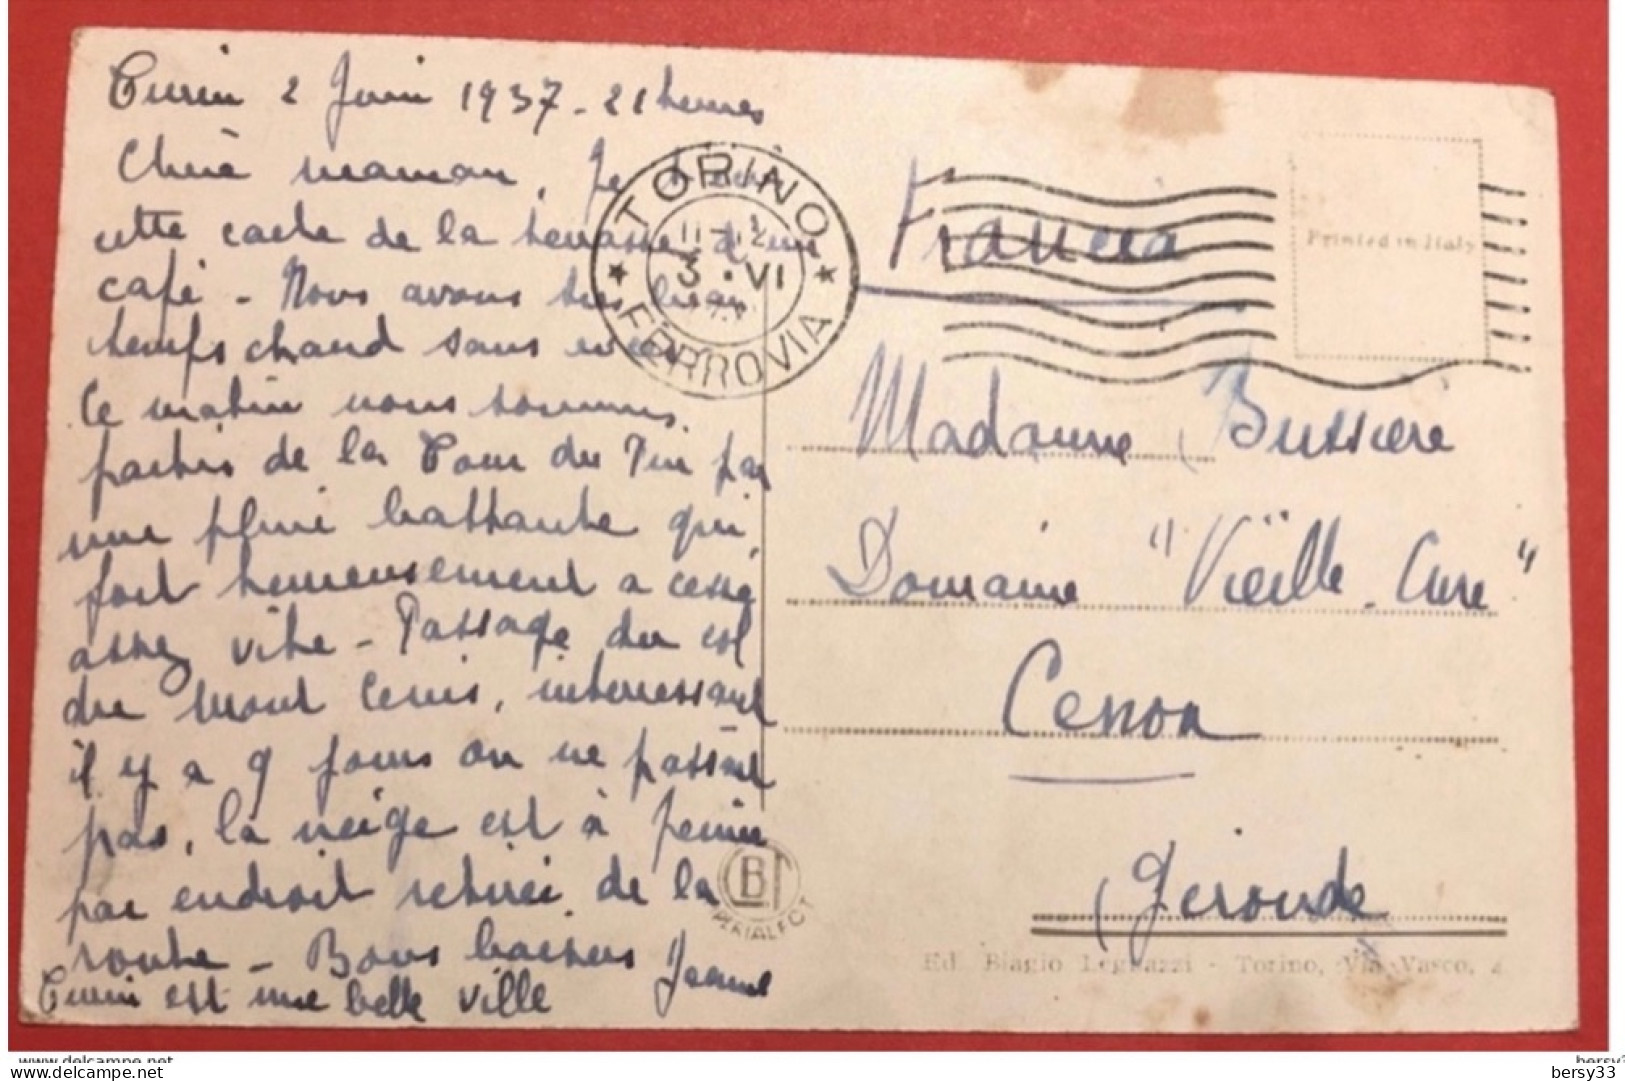 Turin 2 Juin 1937 - 21 heures
Chère maman, Je
cette carte de la terrasse d'un
café - Nous avons très beau
temps chaud sans
Ce matin nous sommes
partis de la Tour du Pin par
une pluie battante qui
fort heureusement a cessé
assez vite - Passage du col
du Mont Cenis, interressant
il y a 9 jours on ne passait
pas, la neige est à
par endroit retiré de la
route - Bons baisers Jeanne
Turin est une belle ville
TORINO
3 · VI
FERROVIA
Francia
Printed in Italy
Madame Bussiere
Domaine "Vieille Cure"
Cenon
Gironde
Ed. Biagio Legnazzi - Torino, Via Vasco, 4
www.delcampe.net
bersy33
www.delcampe.net
bersy33